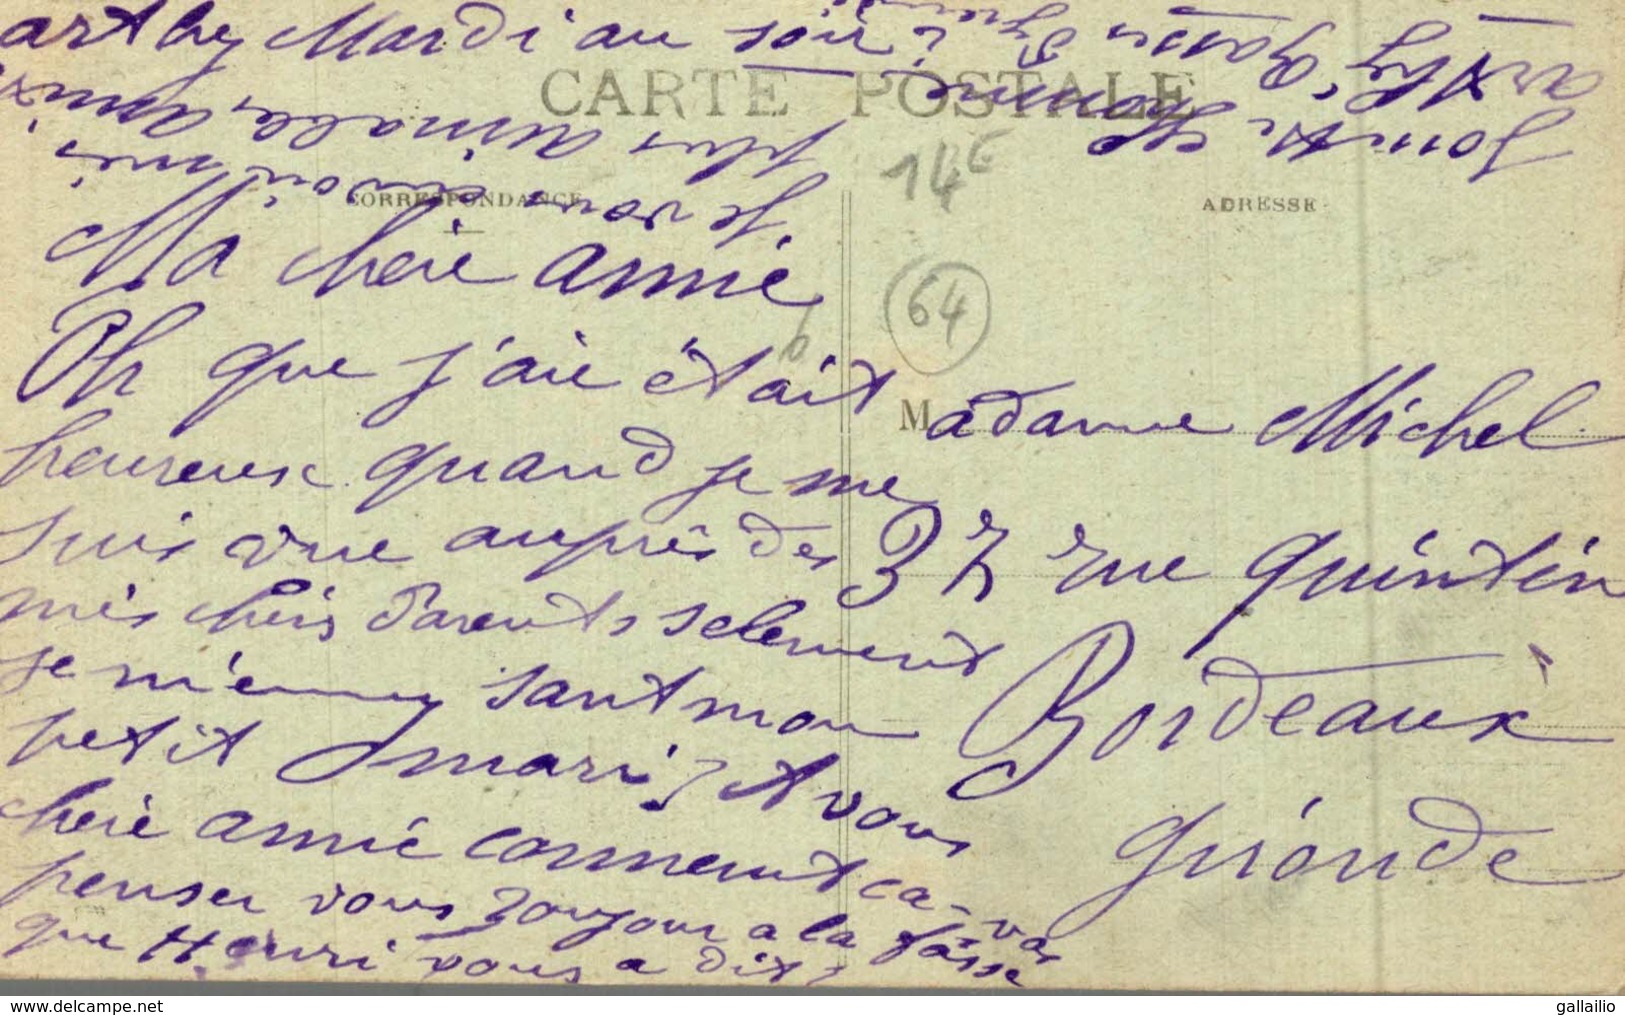 arthez Mardi au soir
CARTE POSTALE
14E
CORRESPONDANCE
ADRESSE
64
Ma chère amie
Oh que j'aie était
heureuse quand je me
suis vue auprès des
mes chèrs Parents selement
je m'ennuy sant mon
petit mari, et vous
chère amie comment ca-va
penser vous toujour a la fasse
que Henri vous a dit,
Madame Michel
37 rue Quintin
Bordeaux
Gironde
Je vous envoie mes
plus aimables amix